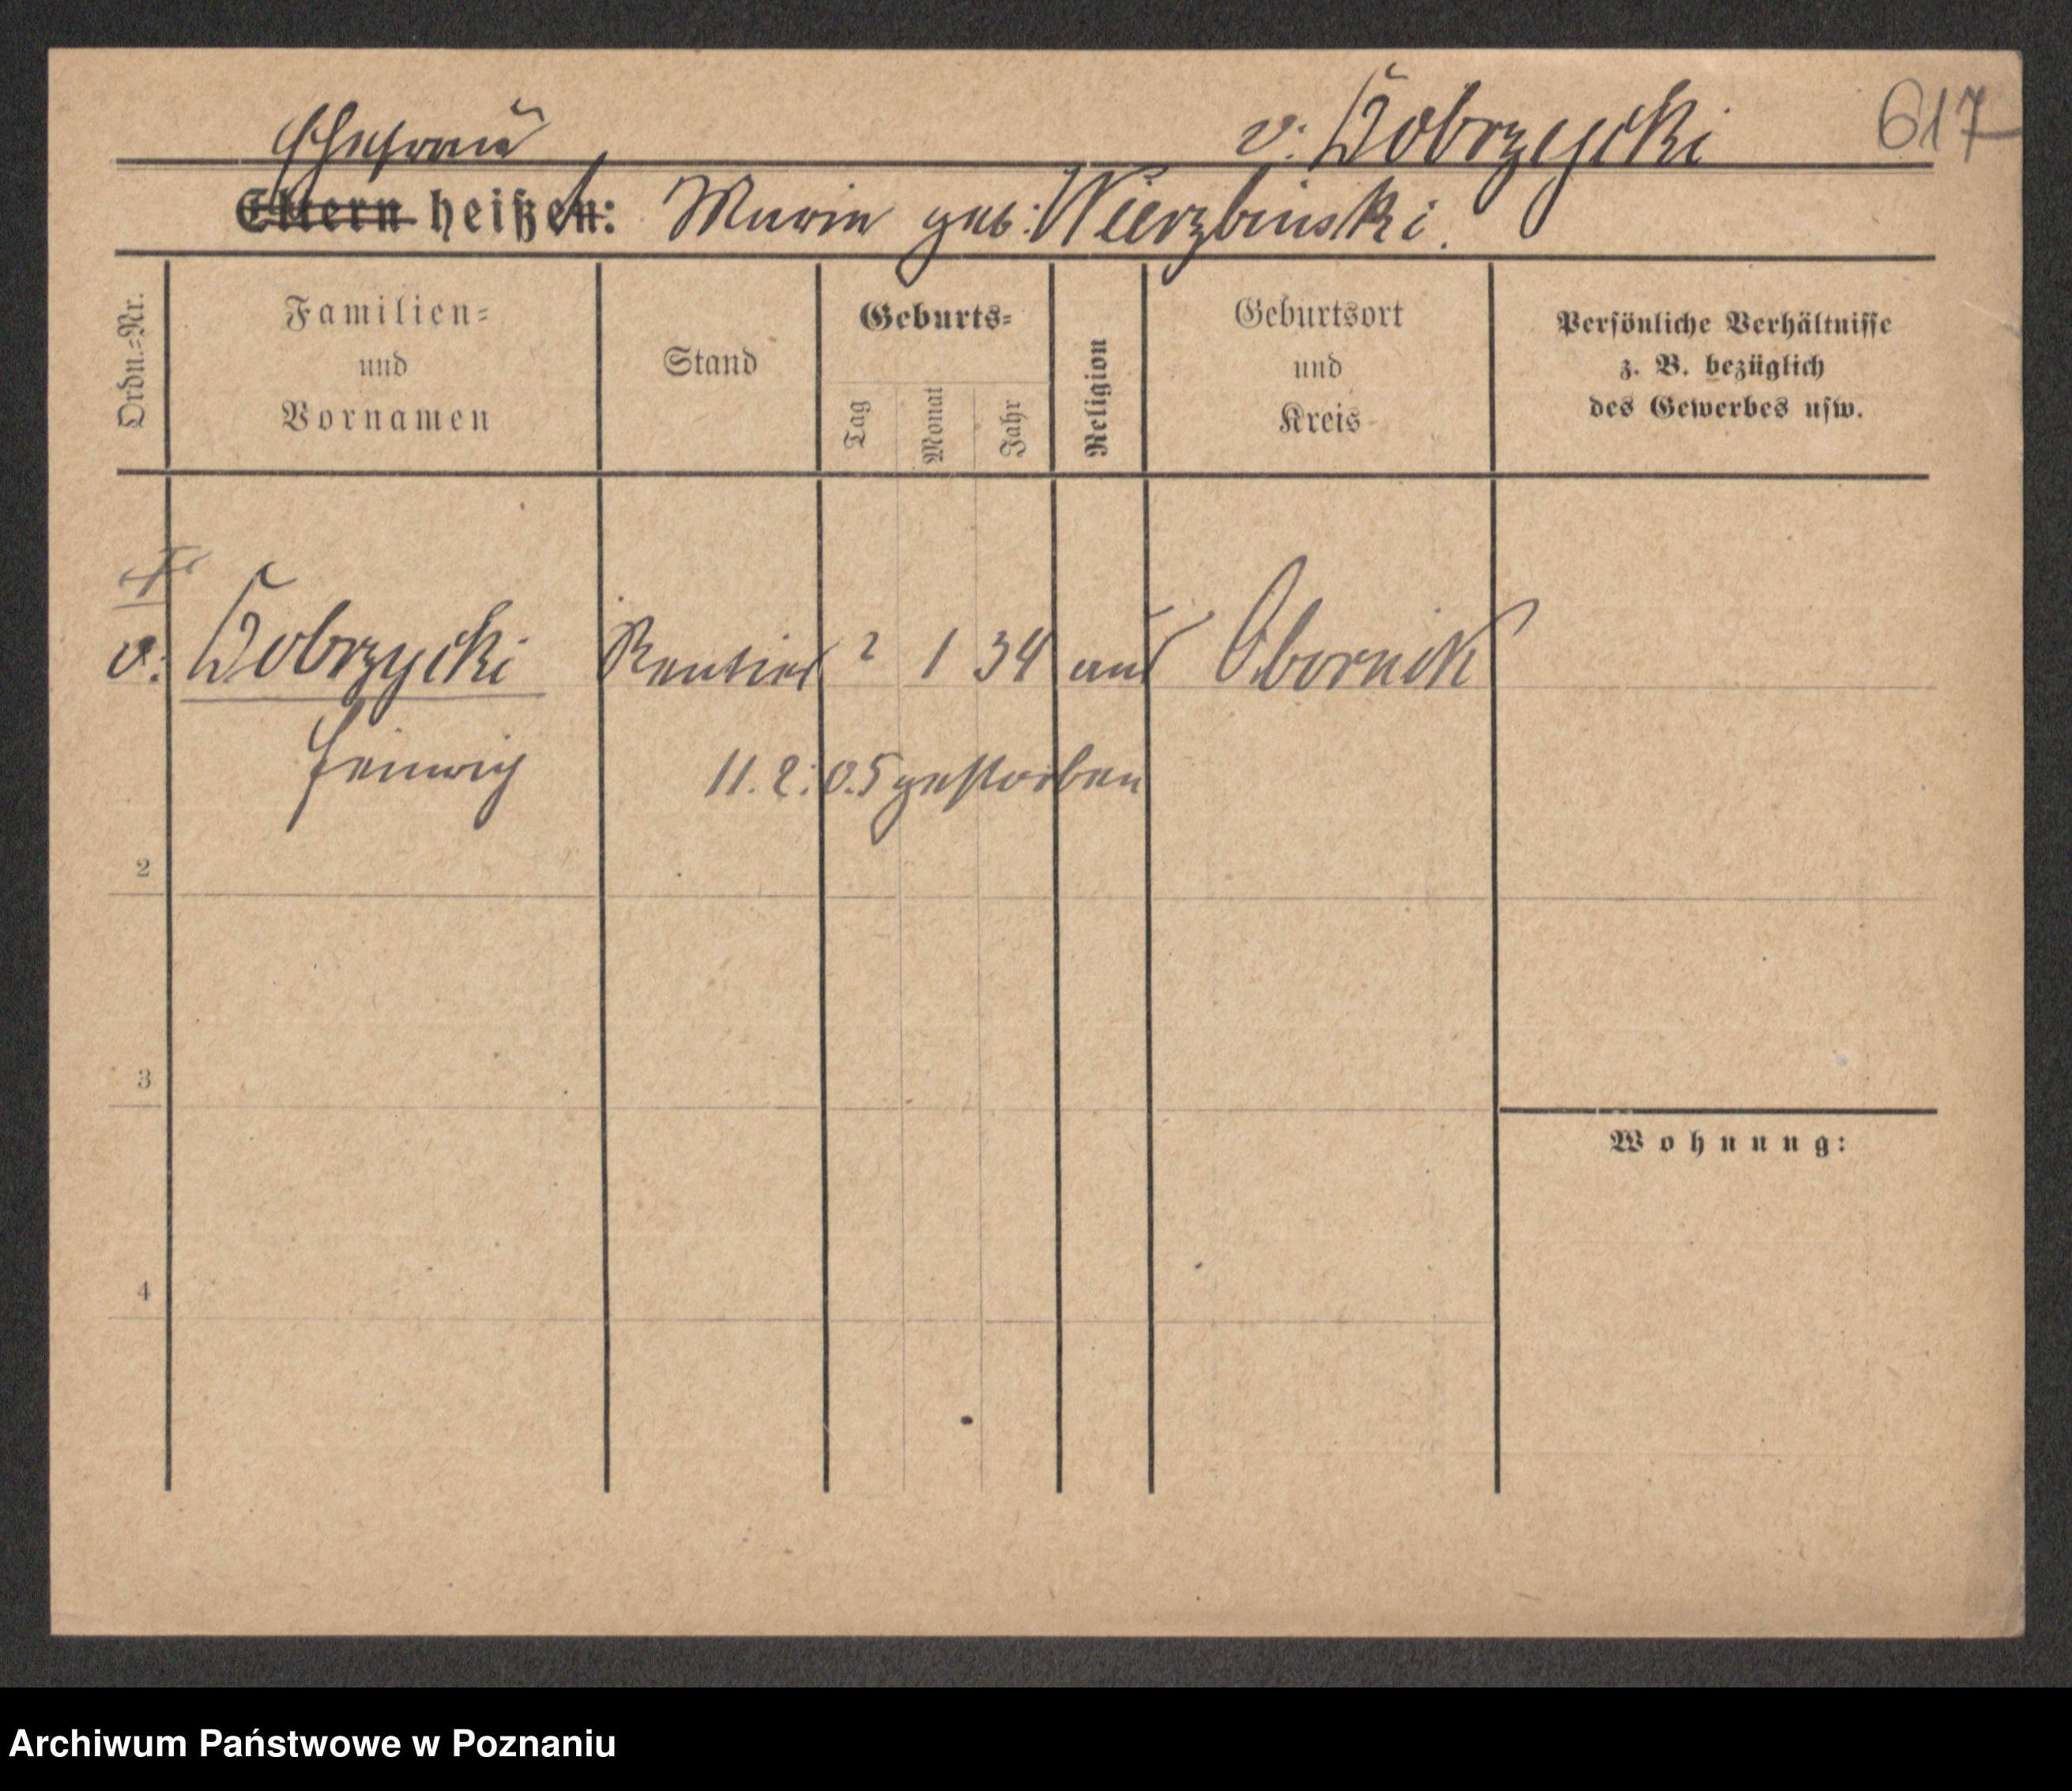 617
v. Dobrzycki
Ehefrau
Eltern heißen: Maria geb. Wierzbinski.
Ordn.-Nr.
Familien-
und
Vornamen
Stand
Geburts-
Tag
Monat
Jahr
Religion
Geburtsort
und
Kreis
Persönliche Verhältnisse
z. B. bezüglich
des Gewerbes usw.
v. Dobrzycki Rentier 2 1 34 Obornik
11.2.05 gestorben
2
3
Wohnung:
4
Archiwum Państwowe w Poznaniu